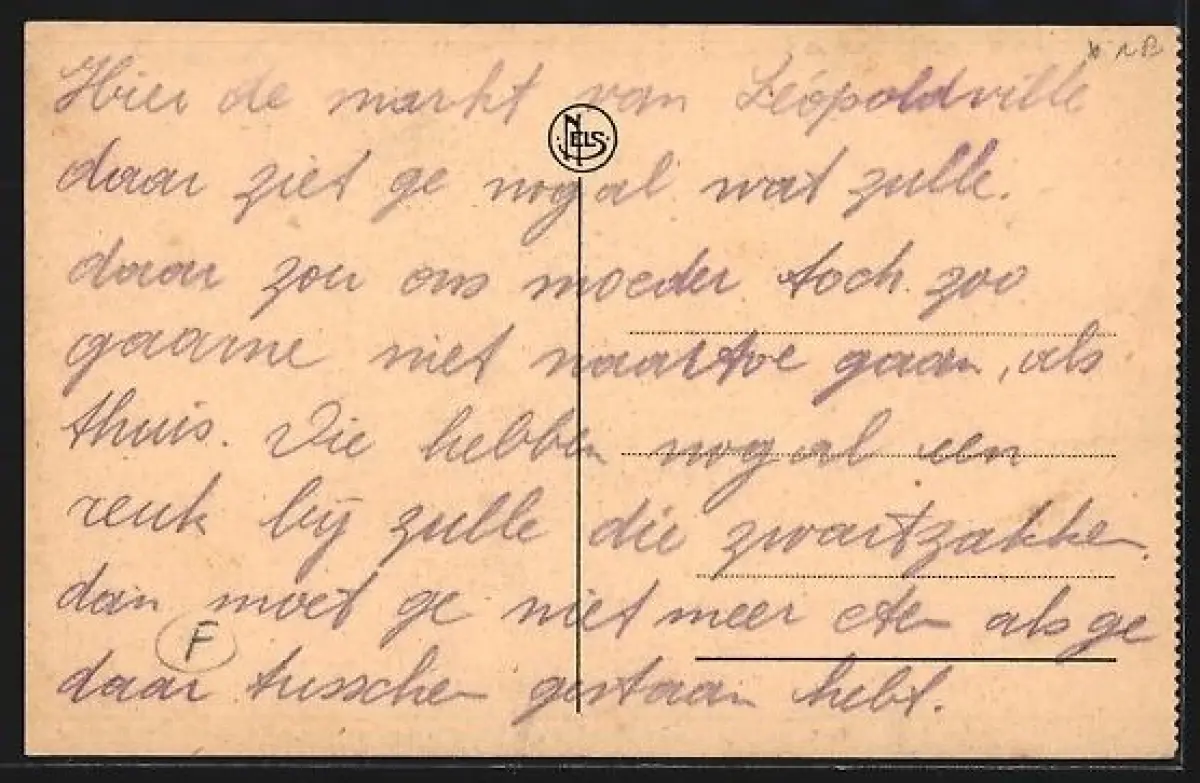 Hier de markt van Léopoldville
NELS
daar ziet ge nog al wat zulle.
daar zou ons moeder toch zoo
gaarne niet naartoe gaan, als
thuis. Die hebben nog al een
reuk bij zulle die zwartzakken.
dan moet ge niet meer eten als ge
F
daar tusschen gestaan hebt.